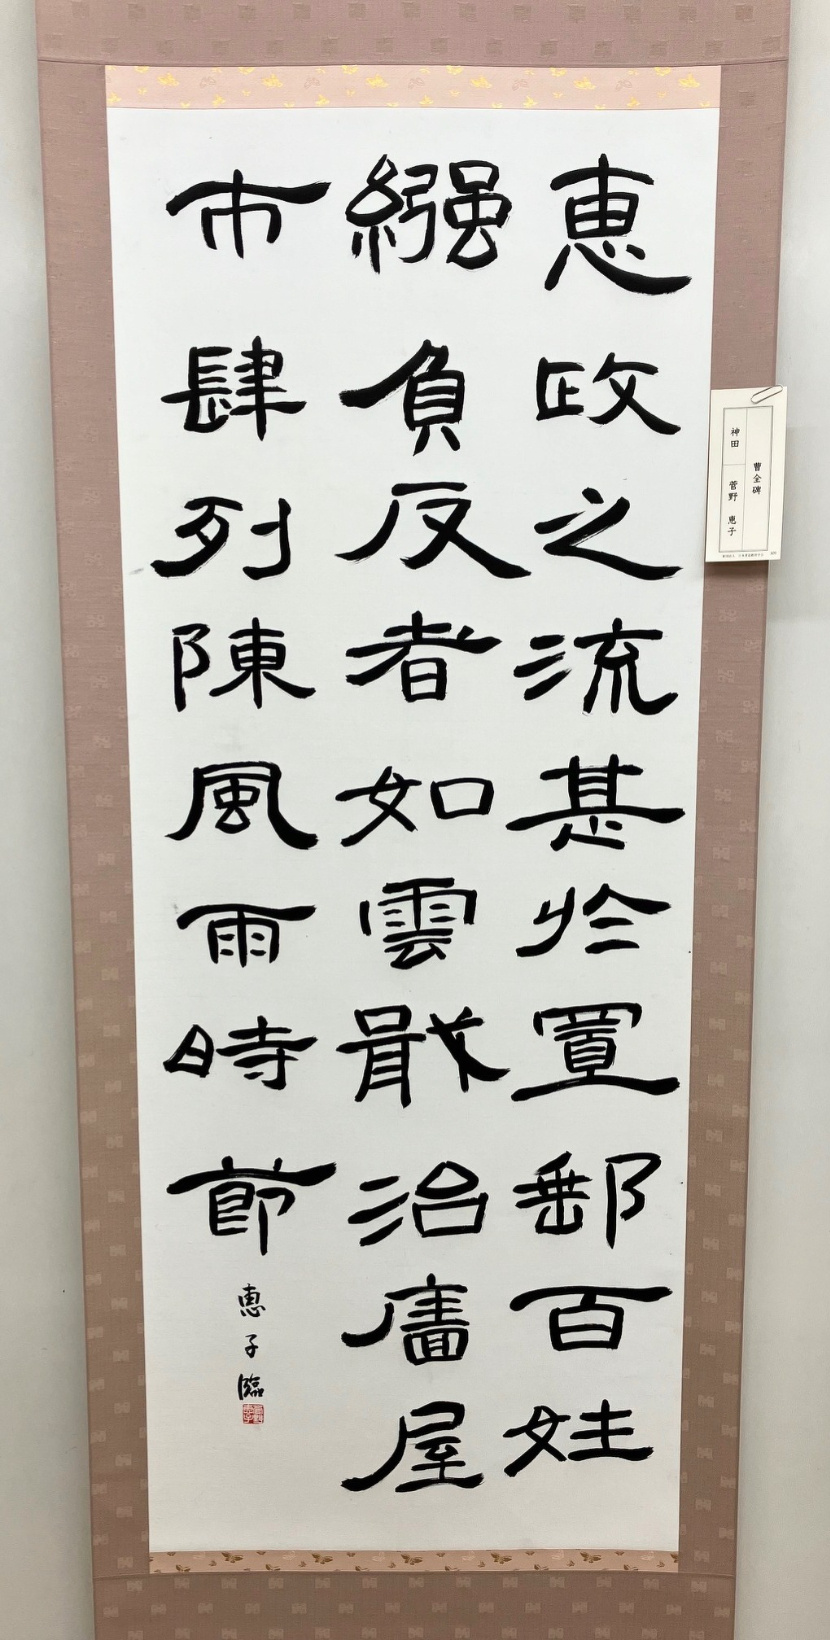 恵政之流甚於置郵百姓
繈負反者如雲戢治廧屋
市肆列陳風雨時節
恵子臨
曹全碑
神田 菅野 恵子